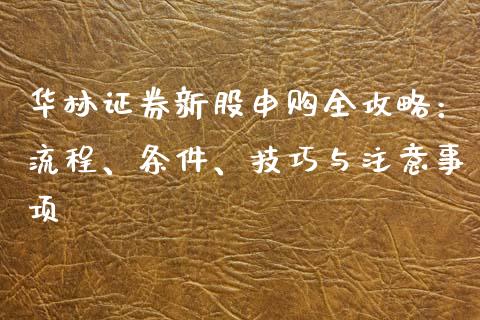 华林证券新股申购全攻略：
流程、条件、技巧与注意事
项